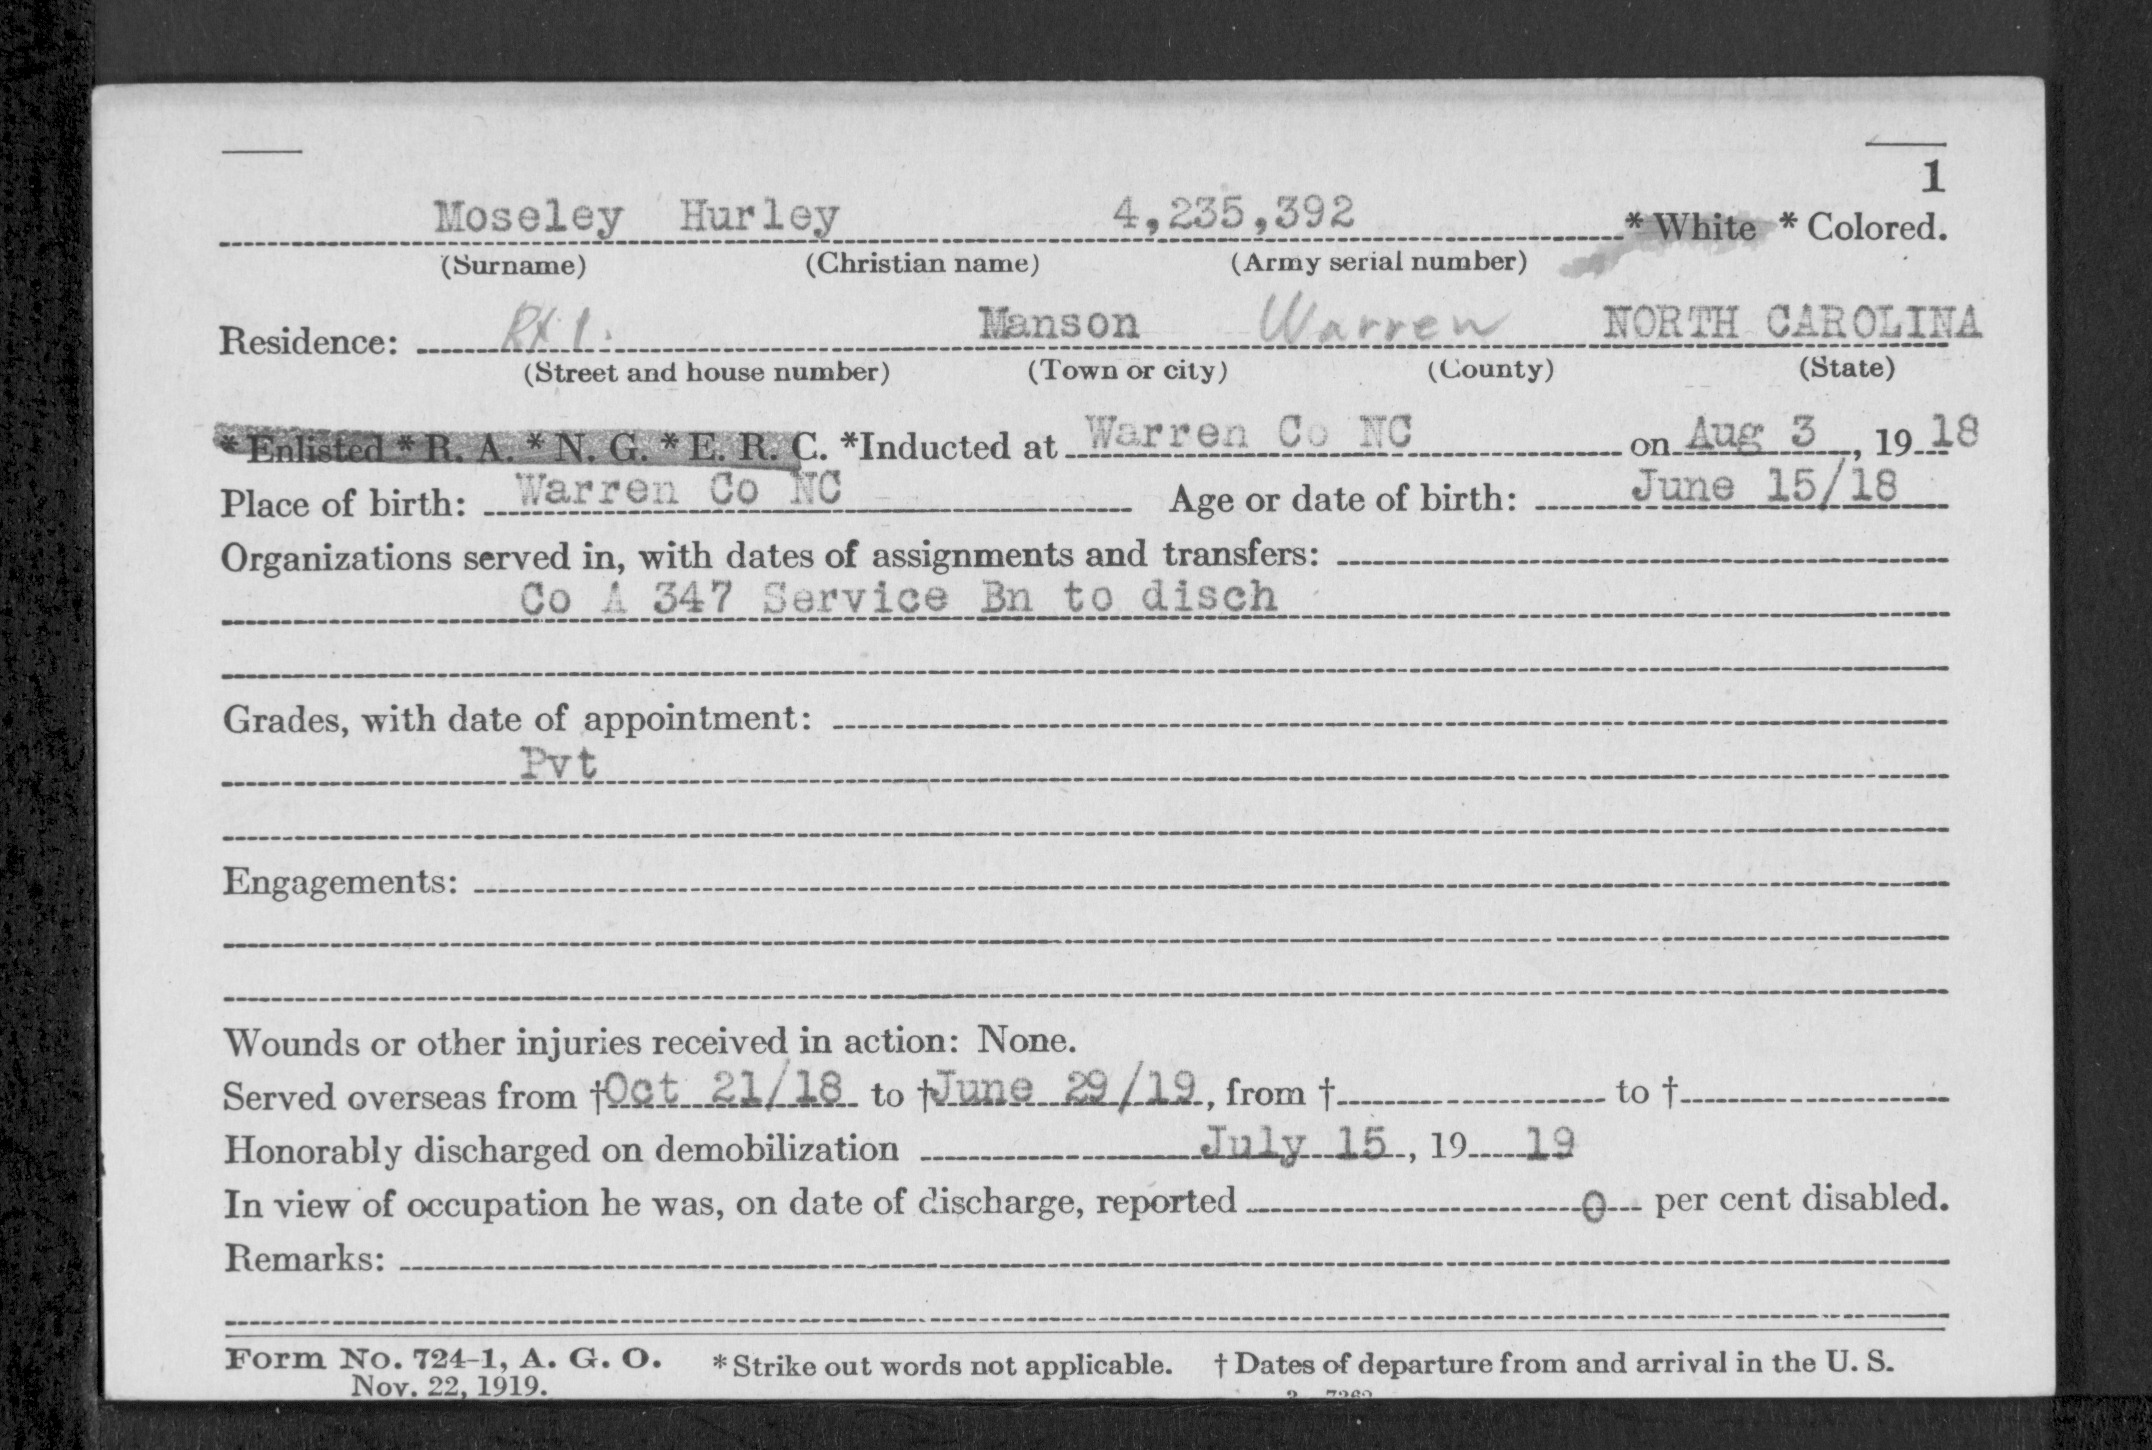 1
Moseley Hurley 4,235,392 * White * Colored.
(Surname) (Christian name) (Army serial number)
Residence: Rt 1. Manson Warren NORTH CAROLINA
(Street and house number) (Town or city) (County) (State)
* Enlisted * R. A. * N. G. * E. R. C. *Inducted at Warren Co NC on Aug 3, 19 18
Place of birth: Warren Co NC Age or date of birth: June 15/18
Organizations served in, with dates of assignments and transfers:
Co A 347 Service Bn to disch
Grades, with date of appointment:
Pvt
Engagements:
Wounds or other injuries received in action: None.
Served overseas from †Oct 21/18 to †June 29/19, from † to †
Honorably discharged on demobilization July 15, 19 19
In view of occupation he was, on date of discharge, reported 0 per cent disabled.
Remarks:
Form No. 724-1, A. G. O. * Strike out words not applicable. † Dates of departure from and arrival in the U. S.
Nov. 22, 1919.